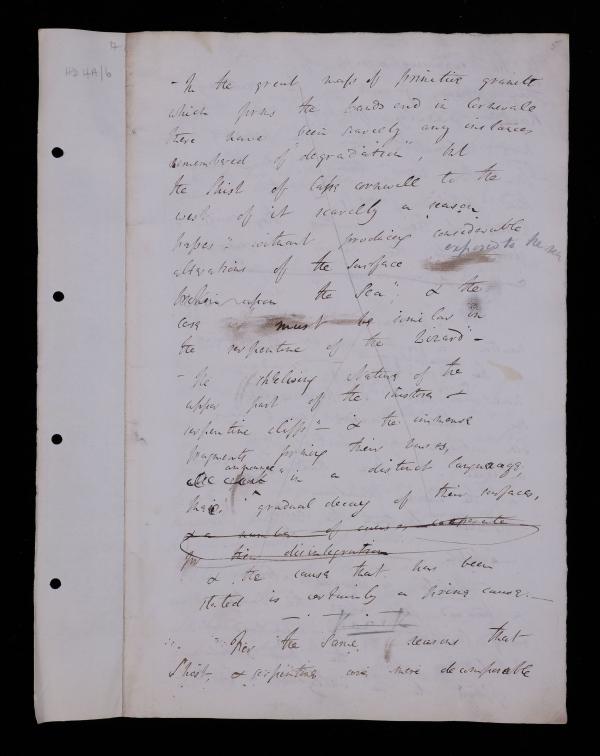 HD 4A/6
4
5
- In the great mass of primitive granite
which forms the lands end in Cornwall
there have been scarcely any instances
remembered of "degradation", but
the Shist of Cornwall to the
west of it scarcely a season
passes without producing considerable
alterations of the surface exposed to the sea
upon the Sea"; & the
case must be similar in
the serpentine of the Lizard" -
- The Shelving Nature of the
upper part of the &
serpentine cliffs - & the immense
fragments forming their bases,
all announce in a distinct language,
their gradual decay of their surfaces,
& a number of causes cooperate
for their disintegration
& the cause that has been
stated is certainly a cause. -
the same reasons that
Shist, & serpentine are more decomposable